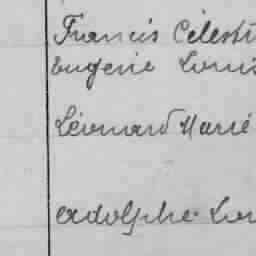 Francis Célesti
Eugène Louis
Léonard Marie
Adolphe Lou